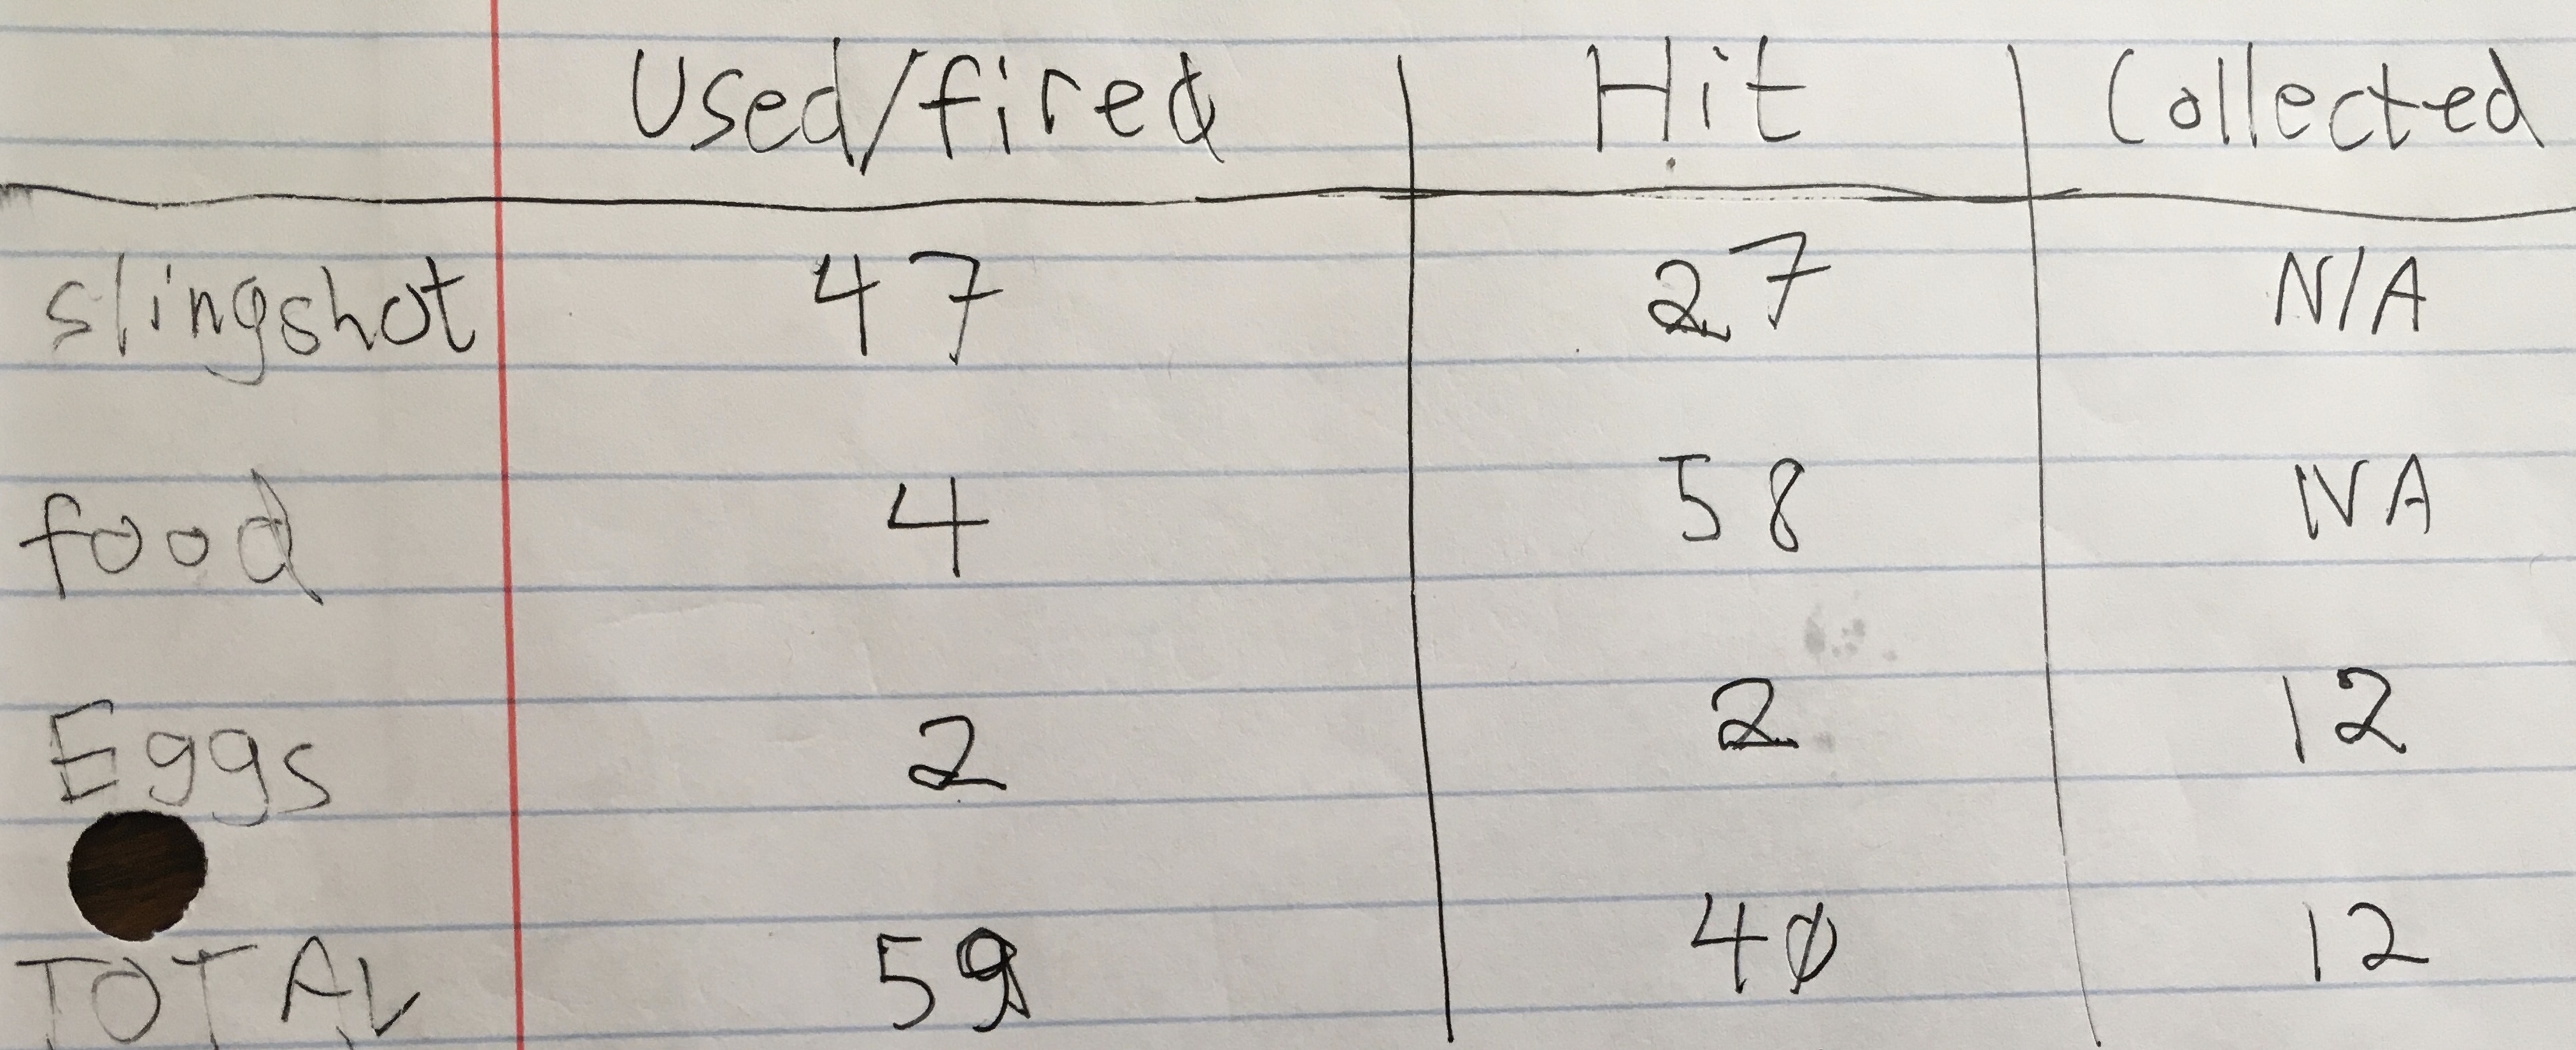 Used/fired Hit Collected
slingshot 47 27 N/A
food 4 58 NA
Eggs 2 2 12
TOTAL 59 40 12